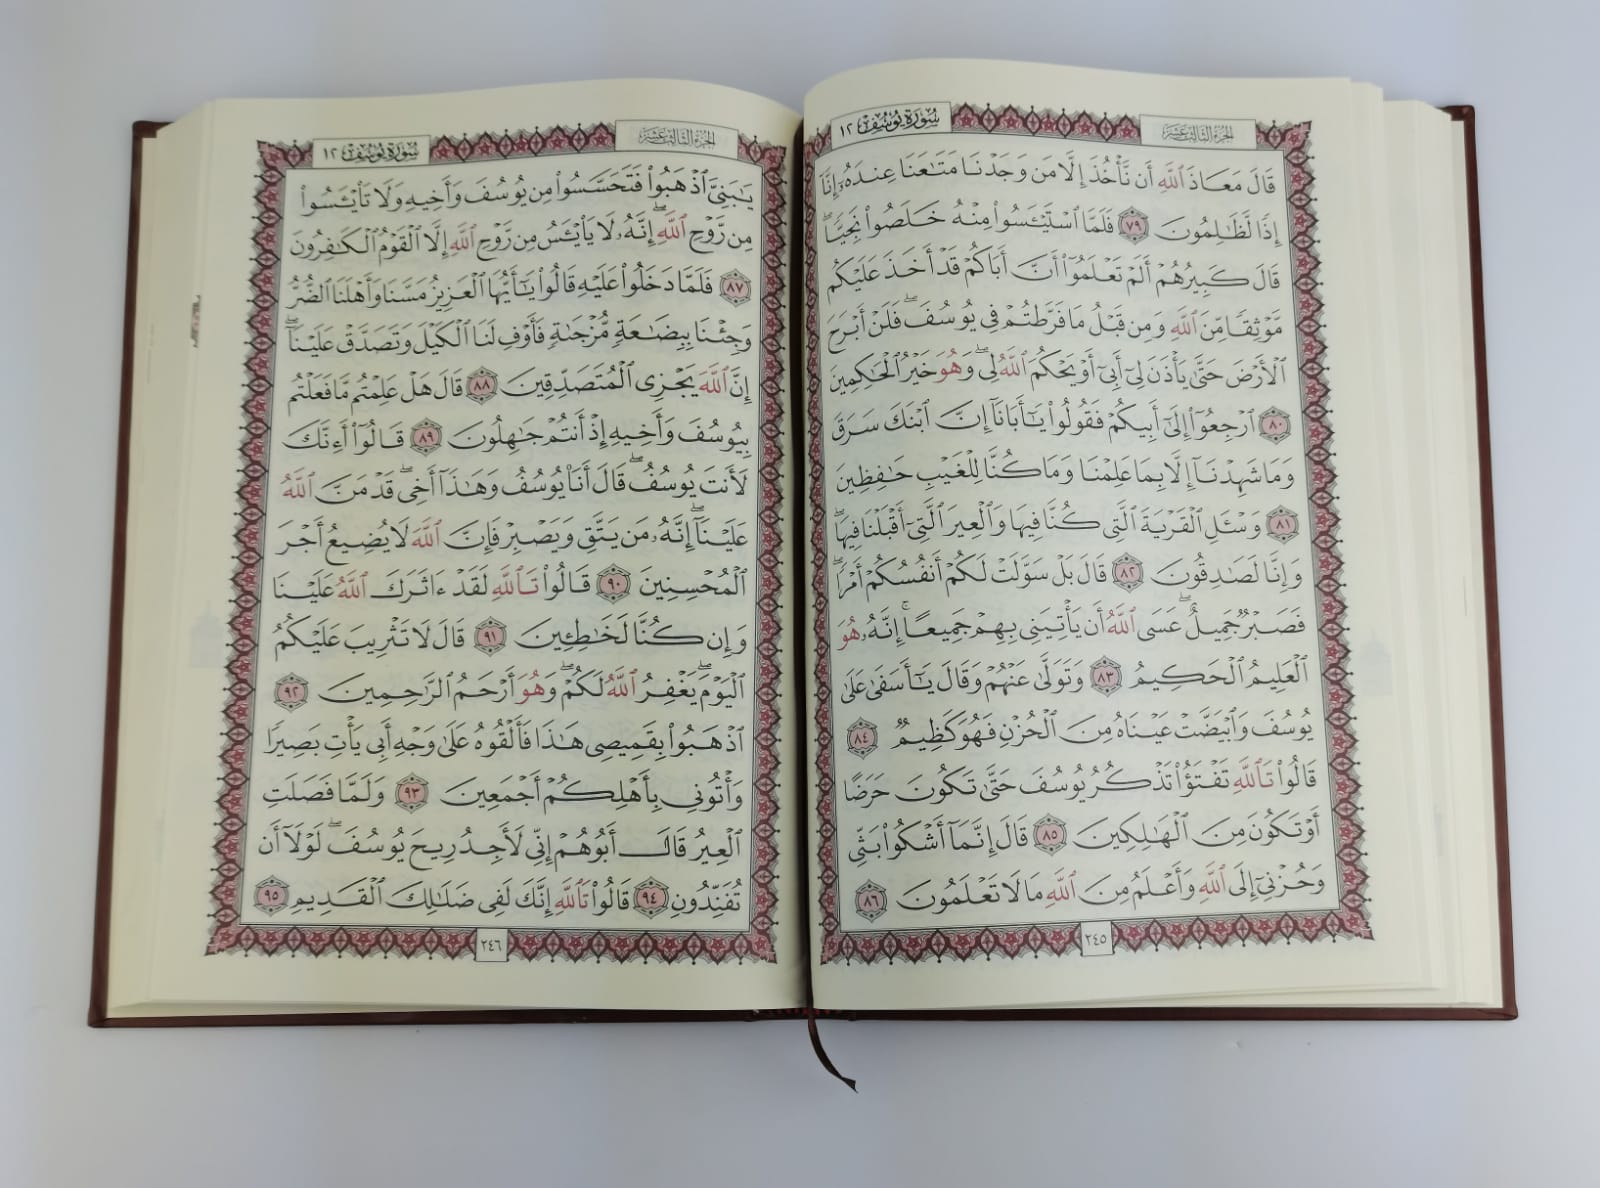 الجزء الثالث عشر
سُورَةُ يُوسُفَ ١٢
قَالَ مَعَاذَ ٱللَّهِ أَن نَّأۡخُذَ إِلَّا مَن وَجَدۡنَا مَتَٰعَنَا عِندَهُۥٓ إِنَّآ
إِذٗا لَّظَٰلِمُونَ ٧٩ فَلَمَّا ٱسۡتَيۡـَٔسُواْ مِنۡهُ خَلَصُواْ نَجِيّٗاۖ
قَالَ كَبِيرُهُمۡ أَلَمۡ تَعۡلَمُوٓاْ أَنَّ أَبَاكُمۡ قَدۡ أَخَذَ عَلَيۡكُم
مَّوۡثِقٗا مِّنَ ٱللَّهِ وَمِن قَبۡلُ مَا فَرَّطتُمۡ فِي يُوسُفَۖ فَلَنۡ أَبۡرَحَ
ٱلۡأَرۡضَ حَتَّىٰ يَأۡذَنَ لِيٓ أَبِيٓ أَوۡ يَحۡكُمَ ٱللَّهُ لِيۖ وَهُوَ خَيۡرُ ٱلۡحَٰكِمِينَ
٨٠ ٱرۡجِعُوٓاْ إِلَىٰٓ أَبِيكُمۡ فَقُولُواْ يَٰٓأَبَانَآ إِنَّ ٱبۡنَكَ سَرَقَ
وَمَا شَهِدۡنَآ إِلَّا بِمَا عَلِمۡنَا وَمَا كُنَّا لِلۡغَيۡبِ حَٰفِظِينَ
٨١ وَسۡـَٔلِ ٱلۡقَرۡيَةَ ٱلَّتِي كُنَّا فِيهَا وَٱلۡعِيرَ ٱلَّتِيٓ أَقۡبَلۡنَا فِيهَاۖ
وَإِنَّا لَصَٰدِقُونَ ٨٢ قَالَ بَلۡ سَوَّلَتۡ لَكُمۡ أَنفُسُكُمۡ أَمۡرٗاۖ
فَصَبۡرٞ جَمِيلٌۖ عَسَى ٱللَّهُ أَن يَأۡتِيَنِي بِهِمۡ جَمِيعًاۚ إِنَّهُۥ هُوَ
ٱلۡعَلِيمُ ٱلۡحَكِيمُ ٨٣ وَتَوَلَّىٰ عَنۡهُمۡ وَقَالَ يَٰٓأَسَفَىٰ عَلَىٰ
يُوسُفَ وَٱبۡيَضَّتۡ عَيۡنَاهُ مِنَ ٱلۡحُزۡنِ فَهُوَ كَظِيمٞ ٨٤
قَالُواْ تَٱللَّهِ تَفۡتَؤُاْ تَذۡكُرُ يُوسُفَ حَتَّىٰ تَكُونَ حَرَضًا
أَوۡ تَكُونَ مِنَ ٱلۡهَٰلِكِينَ ٨٥ قَالَ إِنَّمَآ أَشۡكُواْ بَثِّي
وَحُزۡنِيٓ إِلَى ٱللَّهِ وَأَعۡلَمُ مِنَ ٱللَّهِ مَا لَا تَعۡلَمُونَ ٨٦
٢٤٥
الجزء الثالث عشر
سُورَةُ يُوسُفَ ١٢
يَٰبَنِيَّ ٱذۡهَبُواْ فَتَحَسَّسُواْ مِن يُوسُفَ وَأَخِيهِ وَلَا تَاْيۡـَٔسُواْ
مِن رَّوۡحِ ٱللَّهِۖ إِنَّهُۥ لَا يَاْيۡـَٔسُ مِن رَّوۡحِ ٱللَّهِ إِلَّا ٱلۡقَوۡمُ ٱلۡكَٰفِرُونَ
٨٧ فَلَمَّا دَخَلُواْ عَلَيۡهِ قَالُواْ يَٰٓأَيُّهَا ٱلۡعَزِيزُ مَسَّنَا وَأَهۡلَنَا ٱلضُّرُّ
وَجِئۡنَا بِبِضَٰعَةٖ مُّزۡجَىٰةٖ فَأَوۡفِ لَنَا ٱلۡكَيۡلَ وَتَصَدَّقۡ عَلَيۡنَآۖ
إِنَّ ٱللَّهَ يَجۡزِي ٱلۡمُتَصَدِّقِينَ ٨٨ قَالَ هَلۡ عَلِمۡتُم مَّا فَعَلۡتُم
بِيُوسُفَ وَأَخِيهِ إِذۡ أَنتُمۡ جَٰهِلُونَ ٨٩ قَالُوٓاْ أَءِنَّكَ
لَأَنتَ يُوسُفُۖ قَالَ أَنَا۠ يُوسُفُ وَهَٰذَآ أَخِيۖ قَدۡ مَنَّ ٱللَّهُ
عَلَيۡنَآۖ إِنَّهُۥ مَن يَتَّقِ وَيَصۡبِرۡ فَإِنَّ ٱللَّهَ لَا يُضِيعُ أَجۡرَ
ٱلۡمُحۡسِنِينَ ٩٠ قَالُواْ تَٱللَّهِ لَقَدۡ ءَاثَرَكَ ٱللَّهُ عَلَيۡنَا
وَإِن كُنَّا لَخَٰطِـِٔينَ ٩١ قَالَ لَا تَثۡرِيبَ عَلَيۡكُمُ
ٱلۡيَوۡمَۖ يَغۡفِرُ ٱللَّهُ لَكُمۡۖ وَهُوَ أَرۡحَمُ ٱلرَّٰحِمِينَ ٩٢
ٱذۡهَبُواْ بِقَمِيصِي هَٰذَا فَأَلۡقُوهُ عَلَىٰ وَجۡهِ أَبِي يَأۡتِ بَصِيرٗا
وَأۡتُونِي بِأَهۡلِكُمۡ أَجۡمَعِينَ ٩٣ وَلَمَّا فَصَلَتِ
ٱلۡعِيرُ قَالَ أَبُوهُمۡ إِنِّي لَأَجِدُ رِيحَ يُوسُفَۖ لَوۡلَآ أَن
تُفَنِّدُونِ ٩٤ قَالُواْ تَٱللَّهِ إِنَّكَ لَفِي ضَلَٰلِكَ ٱلۡقَدِيمِ ٩٥
٢٤٦